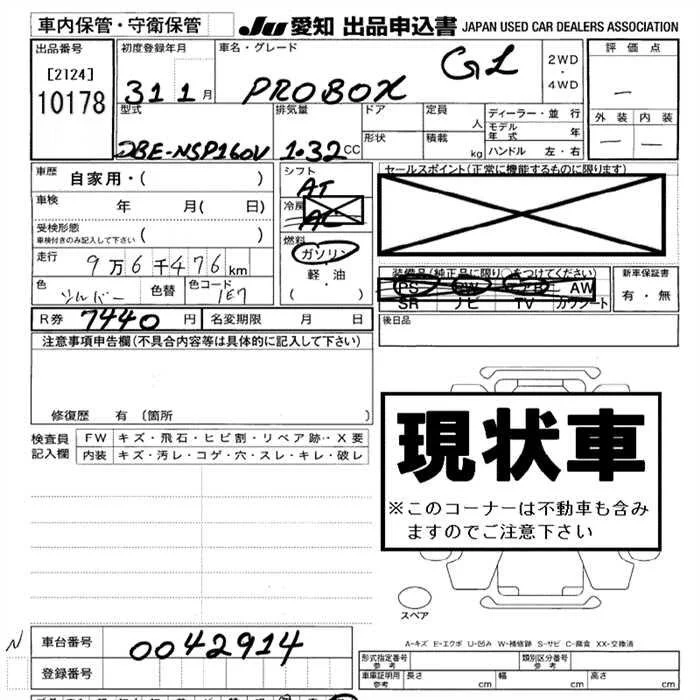 車内保管・守衛保管 JU 愛知 出品申込書 JAPAN USED CAR DEALERS ASSOCIATION
出品番号 初度登録年月 車名・グレード 2WD・4WD 評価点
[2124]
10178 31 1月 PROBOX GL －
型式 排気量 ドア 定員 人 ディーラー・並行 外装 内装
形状 積載 kg モデル年式 年
DBE-NSP160V 1.32CC ハンドル 左・右 － －
車歴 自家用・( ) シフト AT セールスポイント(正常に機能するものに限ります)
車検 年 月( 日) 冷房 AC
受検形態
車検付きのみ記入して下さい ( ) 燃料 ガソリン
走行 9万6千476km 軽・油 装備品(純正品に限り)をつけてください 新車保証書
色 シルバー 色替 色コード 1E7 ( ・ ) PS PW エアB AW 有・無
SR ナビ TV カワシート
R券 7440円 名変期限 月 日 後日品
注意事項申告欄(不具合内容等は具体的に記入して下さい)
修復歴 有(箇所 )
現状車
※このコーナーは不動車も含み
ますのでご注意下さい
検査員 FW キズ・飛石・ヒビ割・リペア跡・X要
記入欄 内装 キズ・汚レ・コゲ・穴・スレ・キレ・破レ
スペア
A-キズ E-エクボ U-凹み W-補修跡 S-サビ C-腐食 XX-交換済
N 車台番号 0042914 形式指定番号 参考 類別区分番号 参考
登録番号 車庫証明用 参考 長さ cm 幅 cm 高さ cm